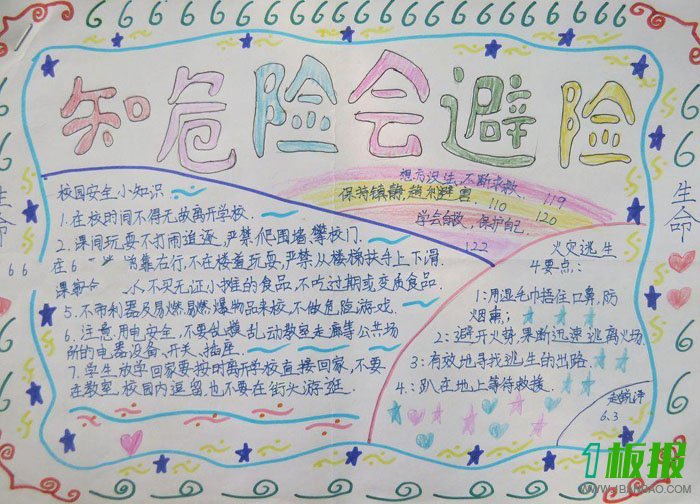 知危险会避险
校园安全小知识
1.在校时间不得无故离开学校.
2.课间玩耍不打闹追逐,严禁爬围墙、攀校门.
靠右行,不在楼道玩耍,严禁从楼梯扶手上下滑.
不买无证小摊的食品,不吃过期或变质食品.
5、不带利器及易燃易燃爆物品来校,不做危险游戏.
6、注意用电安全,不要乱摸、乱动教室走廊等公共场
所的电器设备、开关、插座.
7、学生放学回家要按时离开学校直接回家,不要
在教室,校园内逗留,也不要在街头游逛.
想方设法,不断求救.
119
保持镇静,趋利避害.
110
120
学会自救,保护自己.
122
火灾逃生
4要点:
1:用湿毛巾捂住口鼻,防
烟熏;
2:避开火势,果断迅速逃离火场
3:有效地寻找逃生的出路.
4:趴在地上等待救援.
6.3
生命
生命
1板报
WWW.1BANBAO.COM